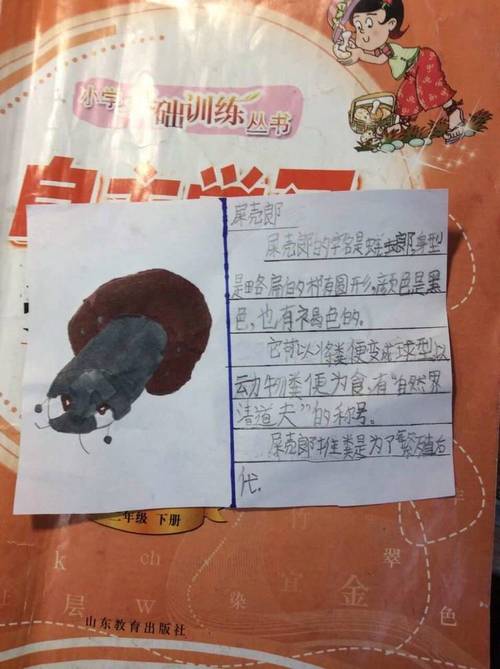 小学 础训练丛书
屎壳郎
屎壳郎的学名是蜣螂,身型
是略扁的椭圆形,颜色是黑
色,也有褐色的。
它能以将粪便变成球型,以
动物粪便为食,有“自然界
清道夫”的称号。
屎壳郎推粪是为了繁殖后
代。
二年级 下册
k
ch
翠
层
W
染
宜
金
色
山东教育出版社